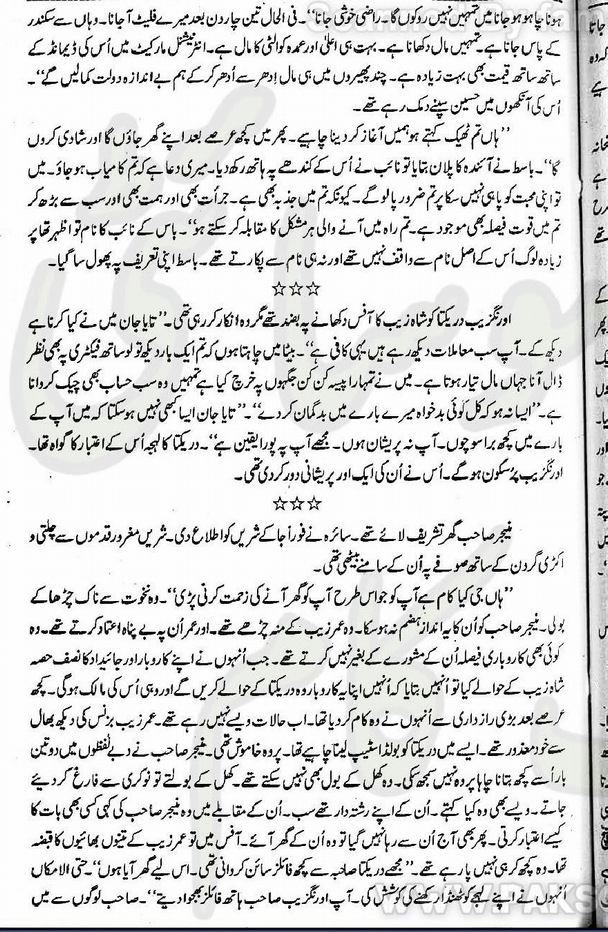 ہونا چاہو ہو جانا میں تمہیں نہیں روکوں گا۔ راضی خوشی جانا''۔ فی الحال تین چار دن بعد میرے فلیٹ آ جانا۔ وہاں سے سکندر
کے پاس جانا ہے۔ تمہیں مال دکھانا ہے۔ بہت ہی اعلیٰ اور عمدہ کوالٹی کا مال ہے۔ انٹرنیشنل مارکیٹ میں اس کی ڈیمانڈ کے
ساتھ ساتھ قیمت بھی بہت زیادہ ہے۔ چند پھیروں میں ہی مال اِدھر سے اُدھر کر کے ہم بے اندازہ دولت کما لیں گے''۔
اُس کی آنکھوں میں حسین سپنے دمک رہے تھے۔
''ہاں تم ٹھیک کہتے ہو ہمیں آغاز کر دینا چاہیے۔ پھر میں کچھ عرصے بعد اپنے گھر جاؤں گا اور شادی کروں
گا''۔ باسط نے آئندہ کا پلان بتایا تو نائب نے اُس کے کندھے پہ ہاتھ رکھ دیا۔ میری دعا ہے کہ تم کامیاب ہو جاؤ۔ میں
تو اپنی محبت کو پا ہی نہیں سکا پر تم ضرور پا لو گے۔ کیونکہ تم میں جذبہ بھی ہے۔ جرأت بھی اور ہمت بھی اور سب سے بڑھ کر
تم میں قوت فیصلہ بھی موجود ہے۔ تم راہ میں آنے والی ہر مشکل کا مقابلہ کر سکتے ہو''۔ باس کے نائب کا نام تو اظہر تھا پر
زیادہ لوگ اُس کے اصل نام سے واقف نہیں تھے اور نہ ہی نام سے پکارتے تھے۔ باسط اپنی تعریف پہ پھول سا گیا۔
☆☆☆
اورنگزیب دریکتا کو شاہ زیب کا آفس دکھانے پہ بضد تھے مگر وہ انکار کر رہی تھی۔ ''تایا جان میں نے کیا کرنا ہے
دیکھ کے۔ آپ سب معاملات دیکھ رہے ہیں یہی کافی ہے''۔ بیٹا میں چاہتا ہوں کہ تم ایک بار دیکھ تو لو ساتھ فیکٹری پہ بھی نظر
ڈال آنا جہاں مال تیار ہوتا ہے۔ میں نے تمہارا پیسہ کن کن جگہوں پہ خرچ کیا ہے تمہیں وہ سب حساب بھی چیک کروانا
ہے۔ ''ایسا نہ ہو کہ کل کوئی بدخواہ میرے بارے میں بدگمان کر دے''۔ ''تایا جان ایسا بھی نہیں ہو سکتا کہ میں آپ کے
بارے میں کچھ برا سوچوں۔ آپ نہ پریشان ہوں۔ مجھے آپ پہ پورا یقین ہے''۔ دریکتا کا لہجہ اُس کے اعتبار کا گواہ تھا۔
اورنگزیب پُرسکون ہو گئے۔ اُس نے اُن کی ایک اور پریشانی دور کر دی تھی۔
☆☆☆
منیجر صاحب گھر تشریف لائے تھے۔ سائرہ نے فوراً جا کے شریں کو اطلاع دی۔ شریں مغرور قدموں سے چلتی و
اکڑی گردن کے ساتھ صوفے پہ اُن کے سامنے بیٹھی تھی۔
''ہاں جی کیا کام ہے آپ کو جو اس طرح آپ کو گھر آنے کی زحمت کرنی پڑی''۔ وہ نخوت سے ناک چڑھا کے
بولی۔ منیجر صاحب کو اُن کا یہ انداز ہضم نہ ہو سکا۔ وہ عمر زیب کے منہ چڑھے تھے۔ اور عمر اُن پہ بے پناہ اعتماد کرتے تھے۔ وہ
کوئی بھی کاروباری فیصلہ اُن کے مشورے کے بغیر نہیں کرتے تھے۔ جب اُنہوں نے اپنے کاروبار اور جائیداد کا نصف حصہ
شاہ زیب کے حوالے کیا تو اُنہیں بتایا کہ اُنہیں اپنا یہ کاروبار وہ دریکتا کے حوالے کریں گے اور وہی اُس کی مالک ہو گی۔ کچھ
عرصے بعد بڑی رازداری سے اُنہوں نے وہ کام کر دیا تھا۔ اب حالات ویسے نہیں رہے تھے۔ عمر زیب بزنس کی دیکھ بھال
سے خود معذور تھے۔ ایسے میں دریکتا کو بولڈ اسٹیپ لینا چاہیے تھا۔ پر وہ خاموش تھی۔ منیجر صاحب نے دبے لفظوں میں دو تین
بار اُسے کچھ بتانا چاہا پر وہ نہیں سمجھ سکی۔ وہ کھل کے بول بھی نہیں سکتے تھے۔ کھل کے بولتے تو نوکری سے فارغ کر دیئے
جاتے۔ ویسے بھی وہ کیا کہتے۔ اُن کے اپنے رشتہ دار تھے سب۔ اُن کے مقابلے میں وہ منیجر صاحب کی کہی کسی بھی بات کا
کیسے اعتبار کرتی۔ پھر بھی آج اُن سے رہا نہیں گیا تو وہ اُن کے گھر آئے۔ آفس میں تو عمر زیب کے تینوں بھائیوں کا قبضہ
تھا۔ وہ کچھ کر ہی نہیں پا رہے تھے۔ ''مجھے دریکتا صاحبہ سے کچھ فائلز سائن کروانی تھی۔ اس لیے گھر آیا ہوں''۔ حتی الامکان
اُنہوں نے اپنے لہجے کو ٹھنڈا رکھنے کی کوشش کی۔ آپ اورنگزیب صاحب ہاتھ فائلز بھجوا دیتے''۔ صاحب لوگوں سے میں
WWW.PAKS